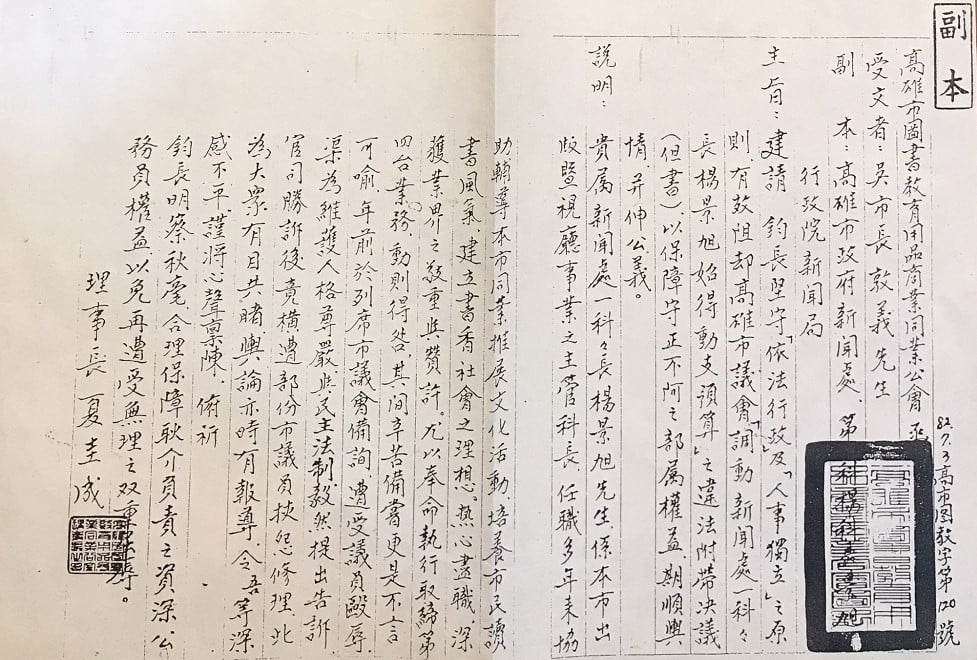 副本
82.7.3高市图教字第120號
高雄市圖書教育用品商業同業公會 函
受文者：吳市長 敦義 先生
副 本：高雄市政府新聞處、第一科
行政院新聞局
主旨：建請 鈞長堅守「依法行政」及「人事獨立」之原
則，有效阻却高雄市議會「調動新聞處一科々
長楊景旭始得動支預算」之違法附帶决議
（但書），以保障守正不阿之部属權益，期順輿
情，并伸公義。
說明：
貴属新聞處一科々長楊景旭先生係本市出
版暨視廳事業之主管科長，任職多年来協
助輔導本市同業推展文化活動、培養市民讀
書風氣、建立書香社會之理想，热心盡職，深
獲業界之敬重與贊許。尤以奉命執行取締第
四台業務，動則得咎，其间辛苦備嘗更是不言
可喻，年前於列席市議會備詢遭受議員毆辱，
渠為維護人格尊嚴與民主法制毅然提出告訴，
官司勝訴後竟橫遭部份市議員挾怨修理，此
為大衆有目共睹，輿論亦時有報導，令吾等深
感不平，謹將心聲禀陳，俯祈
鈞長明察秋毫，合理保障耿介負責之資深公
務員權益，以免再遭受無理之双重
理事長 夏圭成